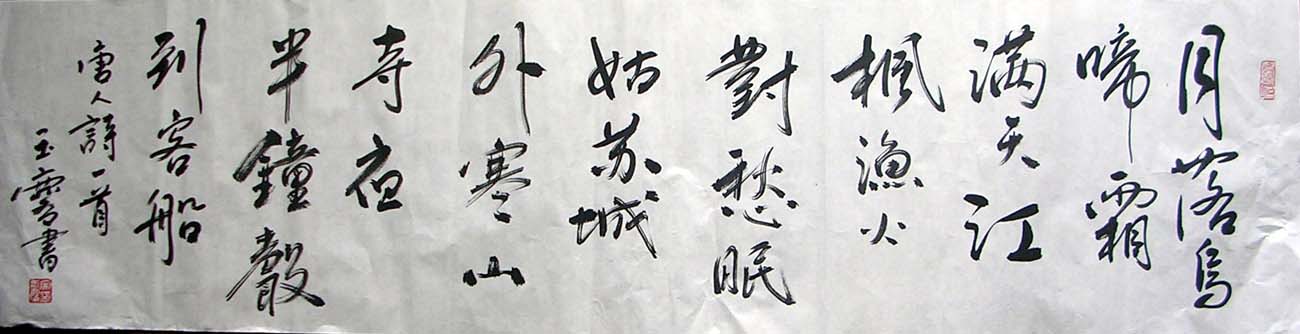 月落烏
啼霜
满天江
楓漁火
對愁眠
姑苏城
外寒山
寺夜
半鐘聲
到客船
唐人詩一首
玉書